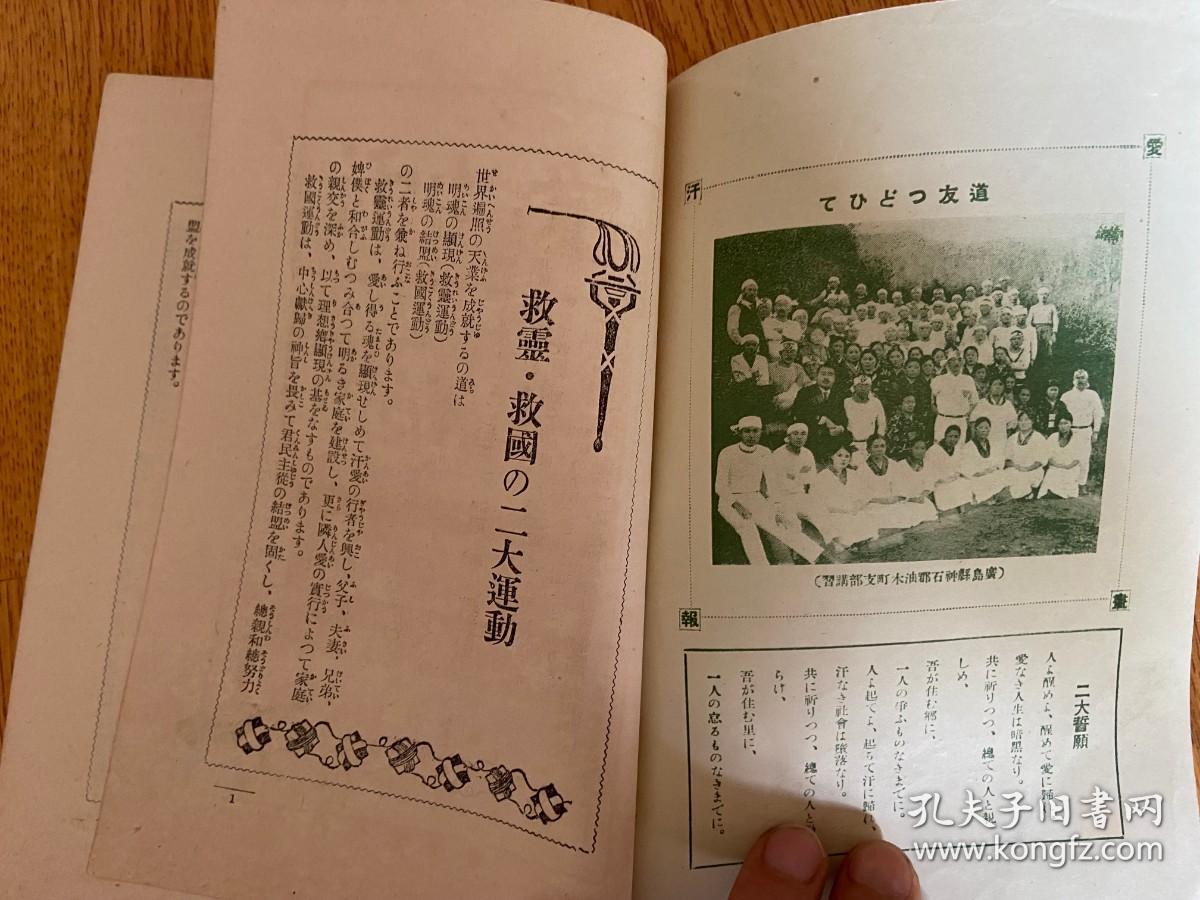 愛
汗
道友つどひて
(廣島縣神石郡油木町支部講習)
畫
報
二大誓願
人よ醒めよ、醒めて愛に歸れ、
愛なき人生は暗黑なり。
共に祈りつつ、總ての人と親
しめ、
吾が住む鄕に、
一人の爭ふものなきまでに。
人よ起てよ、起ちて汗に歸れ、
汗なき社會は墮落なり。
共に祈りつつ、總ての人と
らけ、
吾が住む里に、
一人の怠るものなきまでに。
救靈・救國の二大運動
世界遍照の天業を成就するの道は
明魂の顯現(救靈運動)
明魂の結盟(救國運動)
の二者を兼ね行ふことであります。
救靈運動は、愛し得る魂を顯現せしめて汗愛の行者を興し、父子、夫妻、兄弟、
婢僕と和合しむつみ合つて明るき家庭を建設し、更に隣人愛の實行によつて家庭
の親交を深め、以て理想鄕顯現の基をなすものであります。
救國運動は、中心獻歸の神旨を畏みて君民主從の結盟を固くし、總親和總努力
1
盟を成就するのであります。
孔夫子旧书网
www.kongfz.com